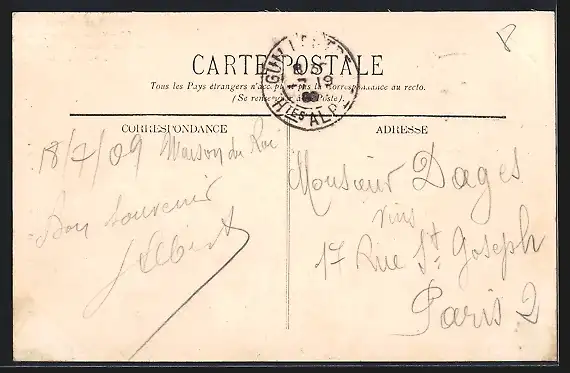 CARTE POSTALE
Tous les Pays étrangers n'acceptent pas la Correspondance au recto.
(Se renseigner à la Poste).
CORRESPONDANCE
ADRESSE
18/7/09 Maison du Roi
Bon souvenir
Monsieur Dages
vins
17 Rue St. Joseph
Paris 2
8
GUILLESTRE
HTES ALP